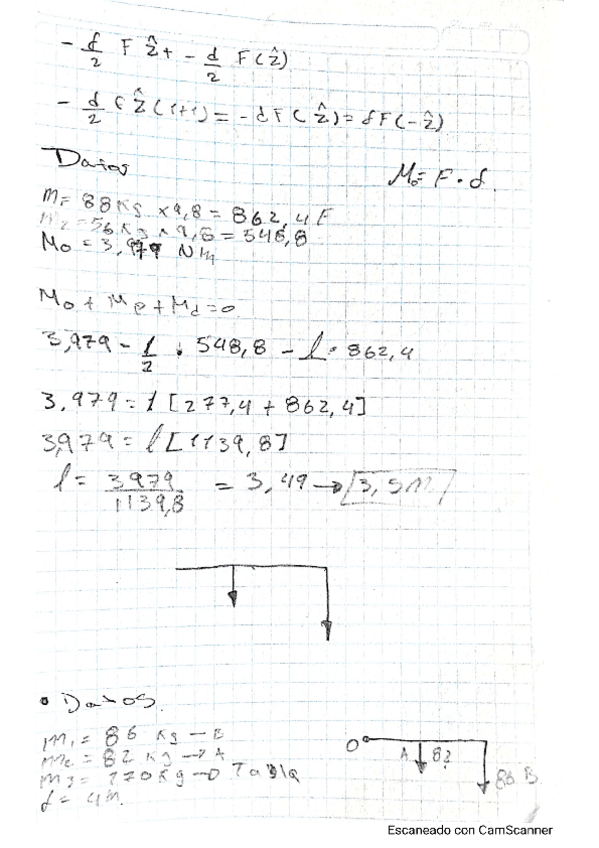 - d/2 F ẑ + - d/2 F(ẑ)
- d/2 F ẑ (1+1) = - dF(ẑ) = dF(-ẑ)
Datos
M₀ = F · d
m = 88 Kg × 9,8 = 862,4 F
m₂ = 56 Kg × 9,8 = 548,8
M₀ = 3,979 Nm
M₀ + Mp + Md = 0
3,979 - l/2 · 548,8 - l · 862,4
3,979 = l [277,4 + 862,4]
3,979 = l [1139,8]
l = 3979/1139,8 = 3,49 → 3,5m
• Datos.
m₁ = 86 Kg → B
m₂ = 82 Kg → A
m₃ = 170 Kg → Tabla
d = 4m.
O
A 82
86 B
Escaneado con CamScanner